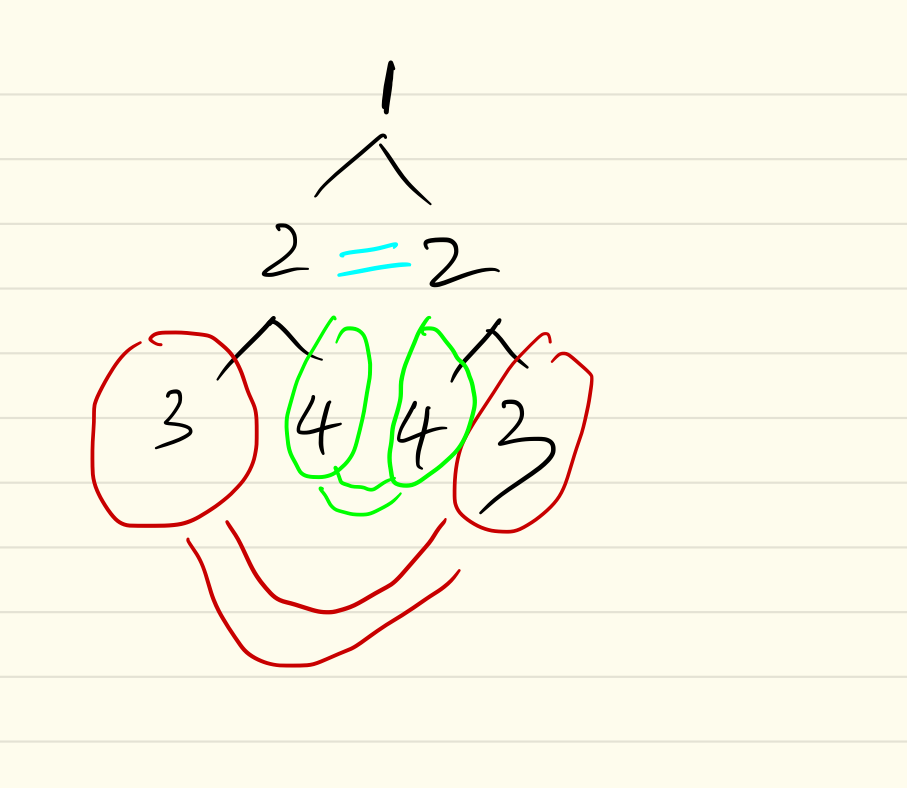 1
2 = 2
3 4 4 3